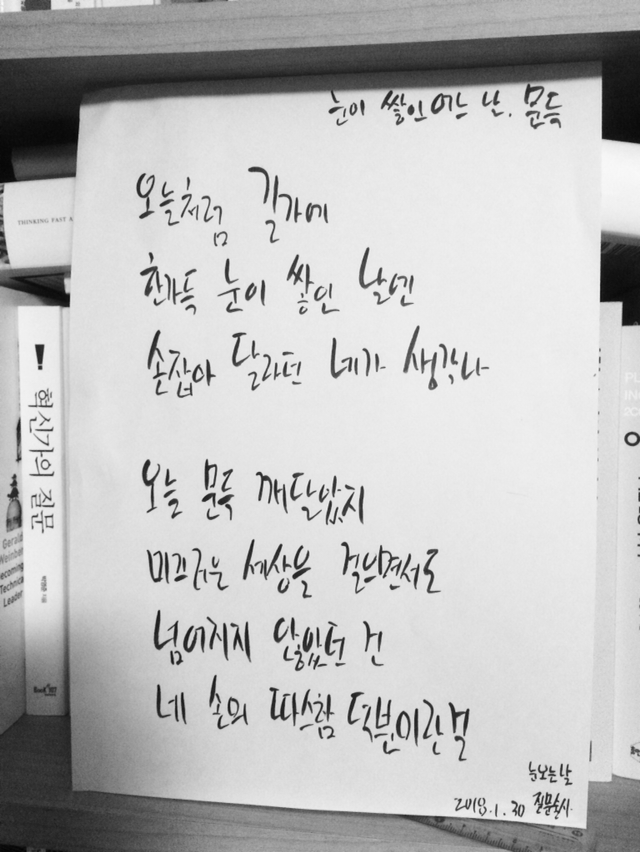 눈이 쌓인 어느 날, 문득
오늘처럼 길가에
한가득 눈이 쌓인 날엔
손잡아 달라던 네가 생각나
오늘 문득 깨달았지
미끄러운 세상을 걸으면서도
넘어지지 않았던 건
네 손의 따스함 덕분이란 걸
눈오는날
2018.1.30 질문술사
THINKING FAST A
혁신가의 질문
박영준 지음
Gerald
Weinberg
ecoming
Technical
Leader